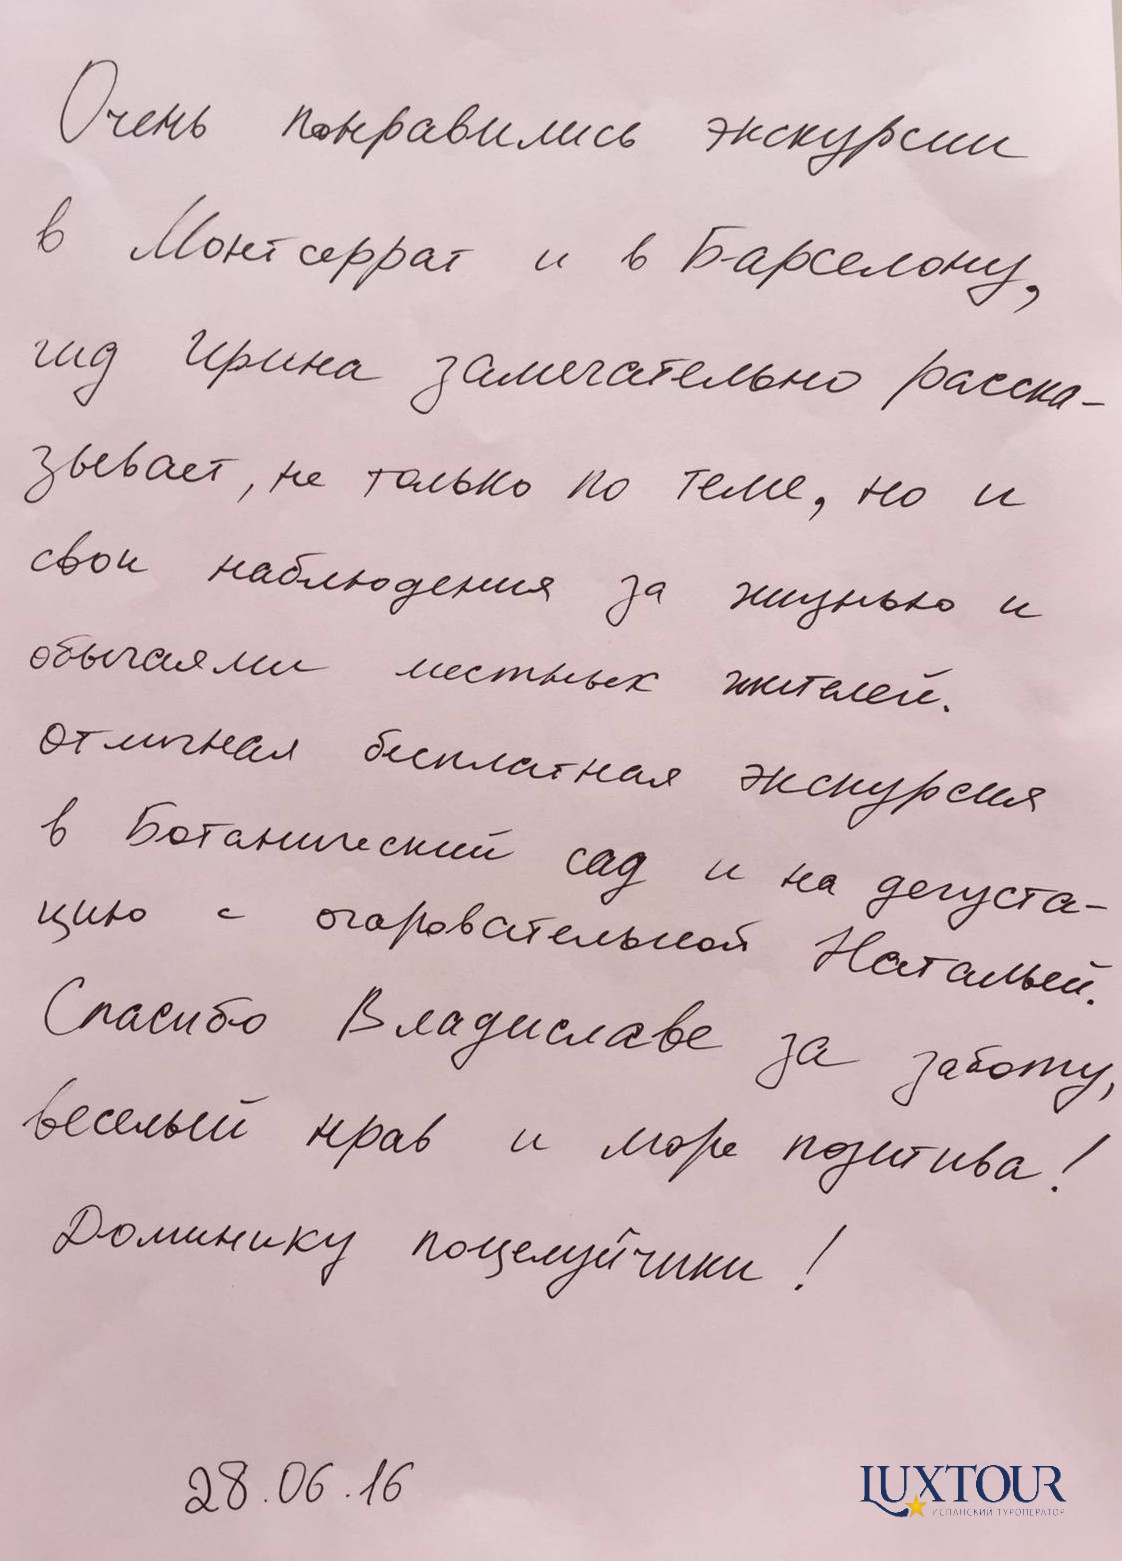 Очень понравились экскурсии
в Монтсеррат и в Барселону,
гид Ирина замечательно расска-
зывает, не только по теме, но и
свои наблюдения за жизнью и
обычаями местных жителей.
Отличная бесплатная экскурсия
в Ботанический сад и на дегуста-
цию с очаровательной Натальей.
Спасибо Владиславе за заботу,
веселый нрав и море позитива!
Доминику поцелуйчики!
28.06.16
LUXTOUR
ИСПАНСКИЙ ТУРОПЕРАТОР